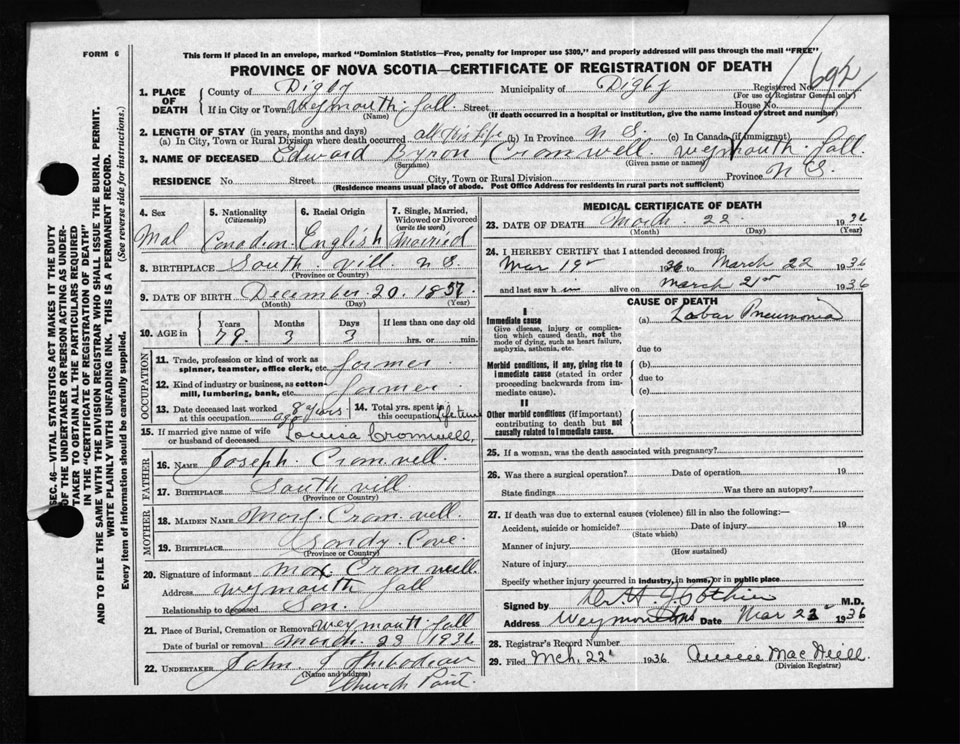 FORM 6
This form if placed in an envelope, marked "Dominion Statistics—Free, penalty for improper use $300," and properly addressed will pass through the mail "FREE"
PROVINCE OF NOVA SCOTIA—CERTIFICATE OF REGISTRATION OF DEATH
1. PLACE OF DEATH County of Digby Municipality of Digby Registered No. 692
(For use of Registrar General only)
If in City or Town Weymouth fall Street House No.
(Name) (If death occurred in a hospital or institution, give the name instead of street and number)
2. LENGTH OF STAY (in years, months and days)
(a) In City, Town or Rural Division where death occurred all his life (b) In Province N S. (c) In Canada (if immigrant)
3. NAME OF DECEASED Edward Byron Cromwell Weymouth fall
(Surname) (Given name or names)
RESIDENCE No Street City, Town or Rural Division Province N S.
(Residence means usual place of abode. Post Office Address for residents in rural parts not sufficient)
4. Sex Mal
5. Nationality (Citizenship) Canadian
6. Racial Origin English
7. Single, Married, Widowed or Divorced (write the word) Married
8. BIRTHPLACE South vill N S.
(Province or Country)
9. DATE OF BIRTH December 20 1857
(Month) (Day) (Year)
10. AGE in Years 79 Months 3 Days 3 If less than one day old hrs. or min.
OCCUPATION
11. Trade, profession or kind of work as spinner, teamster, office clerk, etc. farmer
12. Kind of industry or business, as cotton-mill, lumbering, bank, etc. farmer
13. Date deceased last worked at this occupation 8 years ago
14. Total yrs. spent in this occupation Life time
15. If married give name of wife or husband of deceased Louisa Cromwell
FATHER
16. NAME Joseph Cromwell
17. BIRTHPLACE South vill
(Province or Country)
MOTHER
18. MAIDEN NAME Cromwell
19. BIRTHPLACE Sandy Cove
(Province or Country)
20. Signature of informant Max Cromwell
Address Weymouth fall
Relationship to deceased Son.
21. Place of Burial, Cremation or Removal Weymouth fall
Date of burial or removal March 23 1936
22. UNDERTAKER John J Thibodeau
(Name and address)
Church Point
MEDICAL CERTIFICATE OF DEATH
23. DATE OF DEATH March 22 1936
(Month) (Day) (Year)
24. I HEREBY CERTIFY that I attended deceased from:
Mar 19 1936 to March 22 1936
and last saw him alive on March 21st 1936
CAUSE OF DEATH
I
Immediate cause
Give disease, injury or complication which caused death, not the mode of dying, such as heart failure, asphyxia, asthenia, etc.
(a) Lobar Pneumonia
due to
Morbid conditions, if any, giving rise to immediate cause (stated in order proceeding backwards from immediate cause).
(b)
due to
(c)
II
Other morbid conditions (if important) contributing to death but not causally related to immediate cause.
25. If a woman, was the death associated with pregnancy?
26. Was there a surgical operation? Date of operation 19
State findings Was there an autopsy?
27. If death was due to external causes (violence) fill in also the following:—
Accident, suicide or homicide? Date of injury 19
(State which)
Manner of injury
(How sustained)
Nature of injury
Specify whether injury occurred in industry, in home, or in public place
Signed by M.D.
Address Weymouth Date Mar 23 1936
28. Registrar's Record Number
29. Filed Mch. 22 1936 MacNeill
(Division Registrar)
SEC. 46—VITAL STATISTICS ACT MAKES IT THE DUTY
OF THE UNDERTAKER OR PERSON ACTING AS UNDERTAKER TO OBTAIN ALL THE PARTICULARS REQUIRED
IN THE "CERTIFICATE OF REGISTRATION OF DEATH"
AND TO FILE THE SAME WITH THE DIVISION REGISTRAR WHO SHALL ISSUE THE BURIAL PERMIT.
WRITE PLAINLY WITH UNFADING INK. THIS IS A PERMANENT RECORD.
Every item of information should be carefully supplied. (See reverse side for instructions.)